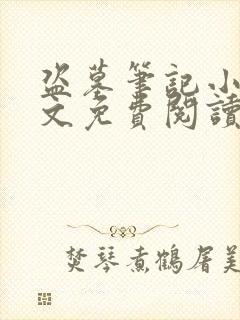 盗墓筆記小
文免費閱讀
焚琴煮鶴屠美